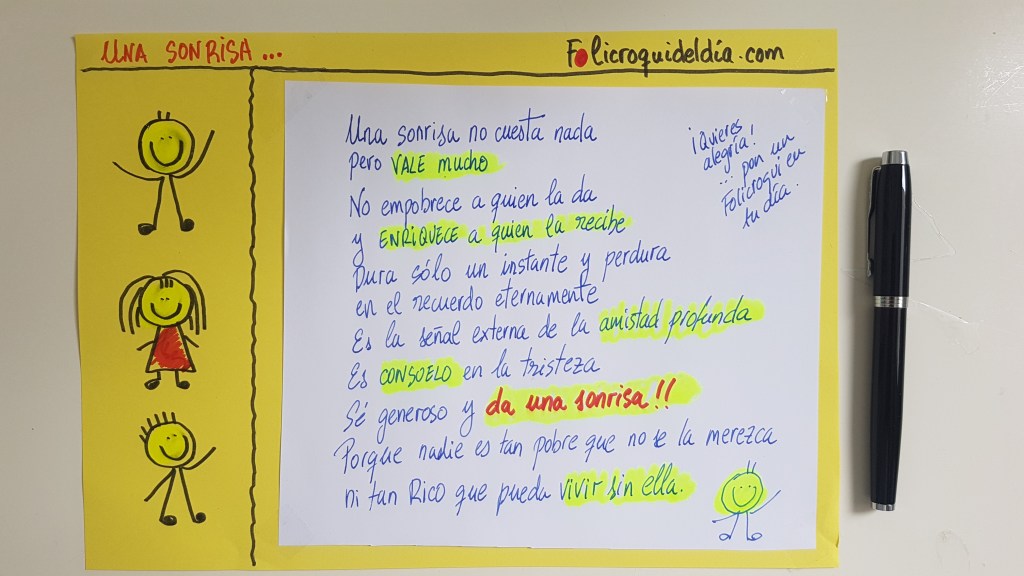 UNA SONRISA...
Folicroquideldía.com
Una sonrisa no cuesta nada
pero VALE mucho
No empobrece a quien la da
y ENRIQUECE a quien la recibe
Dura sólo un instante y perdura
en el recuerdo eternamente
Es la señal externa de la amistad profunda
Es CONSUELO en la tristeza
Sé generoso y da una sonrisa!!
Porque nadie es tan pobre que no se la merezca
ni tan Rico que pueda vivir sin ella.
¡Quieres
alegría!
... pon un
Folicroqui en
tu día.